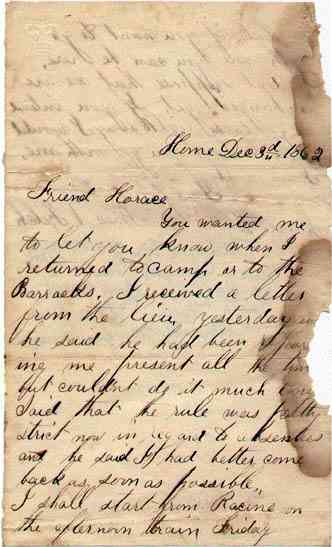 Home Dec 3rd 1862
Friend Horace
You wanted me
to let you know when I
returned to camp or to the
Barracks. I received a letter
from the lieu. yesterday
he said he had been
ing me present all the
but couldnt do it much
Said that the rule was
strict now in regard to absentees
and he said I had better come
back as soon as possible,,
I shall start from Racine on
the afternoon train Friday